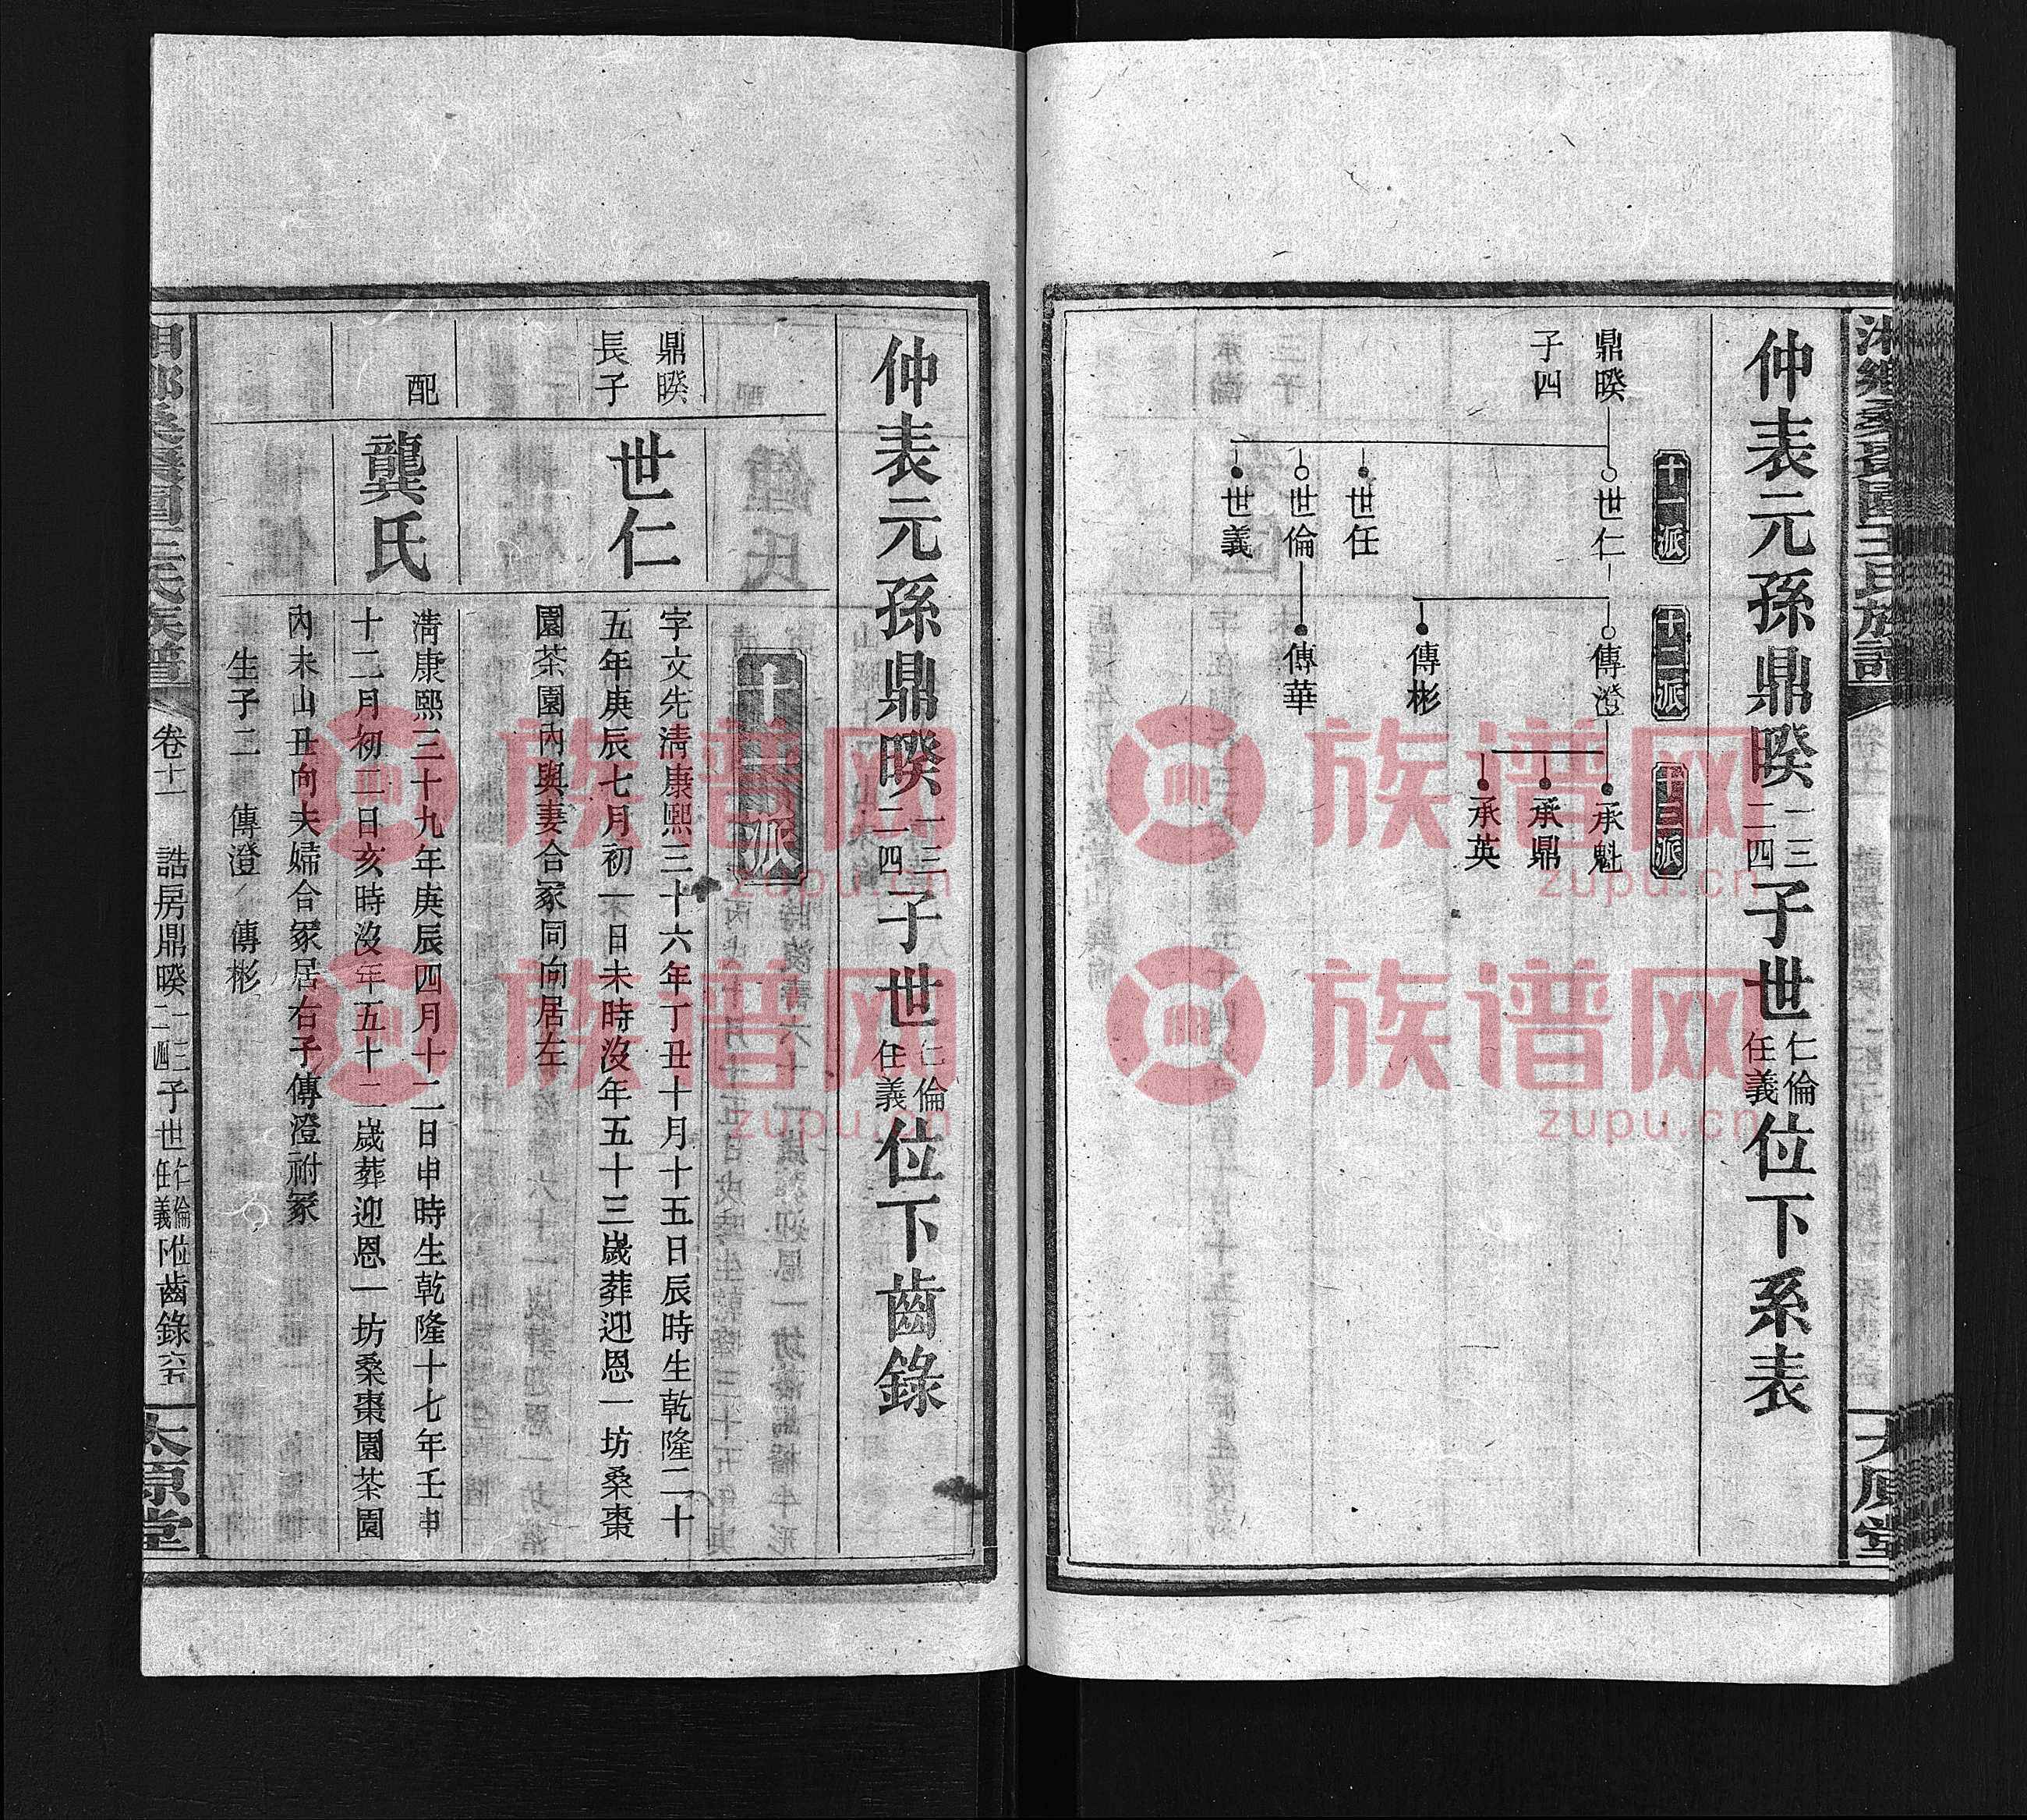 仲表元孫鼎暌一三二四子世仁倫任義位下系表
十一派
十二派
十三派
鼎暌
子四
世仁
世任
世倫
世義
傳澄
傳彬
傳華
承魁
承鼎
承英
太原堂
仲表元孫鼎暌一三二四子世仁倫任義位下齒錄
十一派
鼎暌
長子
世仁
字文先清康熙三十六年丁丑十月十五日辰時生乾隆二十
五年庚辰七月初一日未時沒年五十三歲葬迎恩一坊桑棗
園茶園內與妻合冢同向居左
配
龔氏
清康熙三十九年庚辰四月十二日申時生乾隆十七年壬申
十二月初二日亥時沒年五十二歲葬迎恩一坊桑棗園茶園
內未山丑向夫婦合冢居右子傳澄祔冢
生子二 傳澄 傳彬
卷十一 誥房鼎暌一三二四子世仁倫任義位下齒錄 六五
太原堂
族谱网
zupu.cn
族谱网
zupu.cn
族谱网
zupu.cn
族谱网
zupu.cn